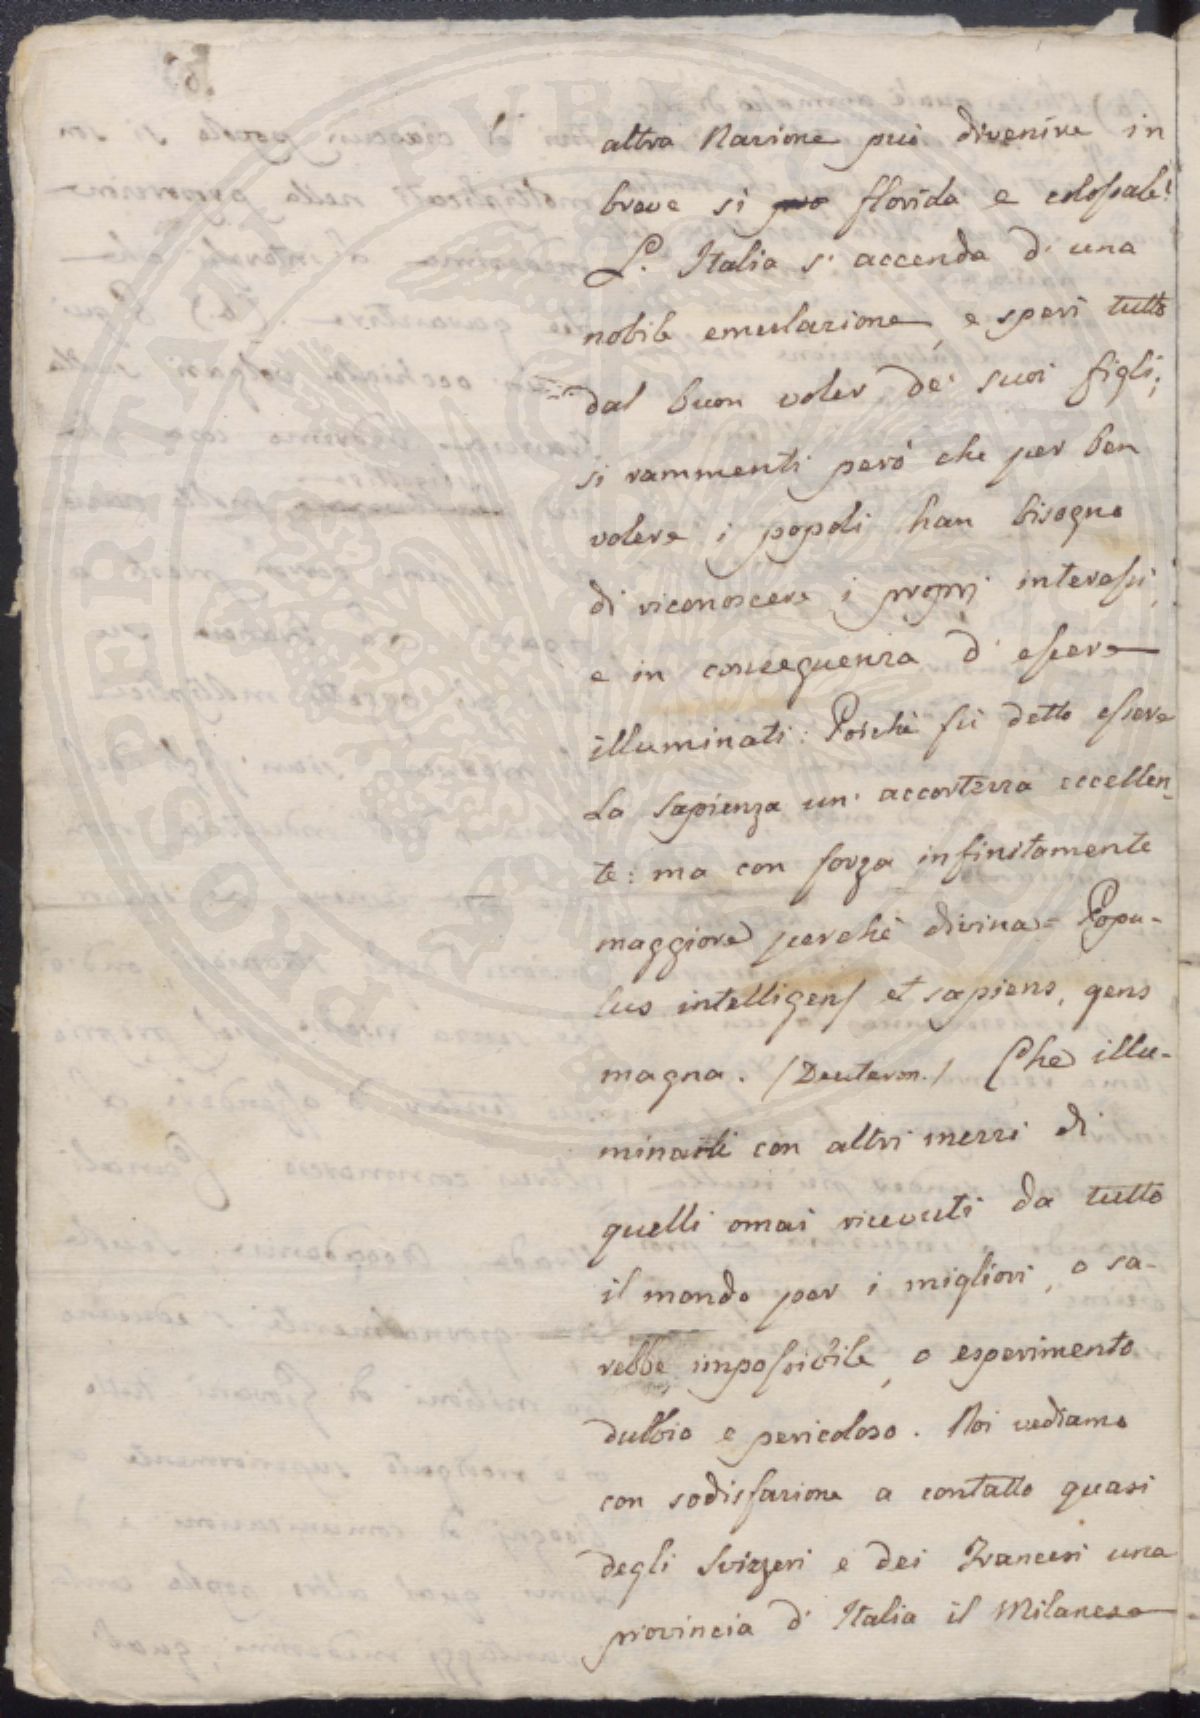 altra Nazione può divenire in
breve si pro florida e colossale!
L' Italia s' accenda d' una
nobile emulazione, e speri tutto
dal buon voler de' suoi figli;
si rammenti però che per ben
volere i popoli han bisogno
di riconoscere i proprj interessi,
e in conseguenza d' essere
illuminati: Poichè fù detto essere
La sapienza un' accortezza eccellen-
te: ma con forza infinitamente
maggiore perchè divina = Popu-
lus intelligens et sapiens, gens
magna. (Deuteron.) Che illu-
minarli con altri mezzi di
quelli omai ricevuti da tutto
il mondo per i migliori, o sa-
rebbe impossibile, o esperimento
dubbio e pericoloso. Noi vediamo
con sodisfazione a contatto quasi
degli Svizzeri e dei Francesi una
provincia d' Italia il Milanese